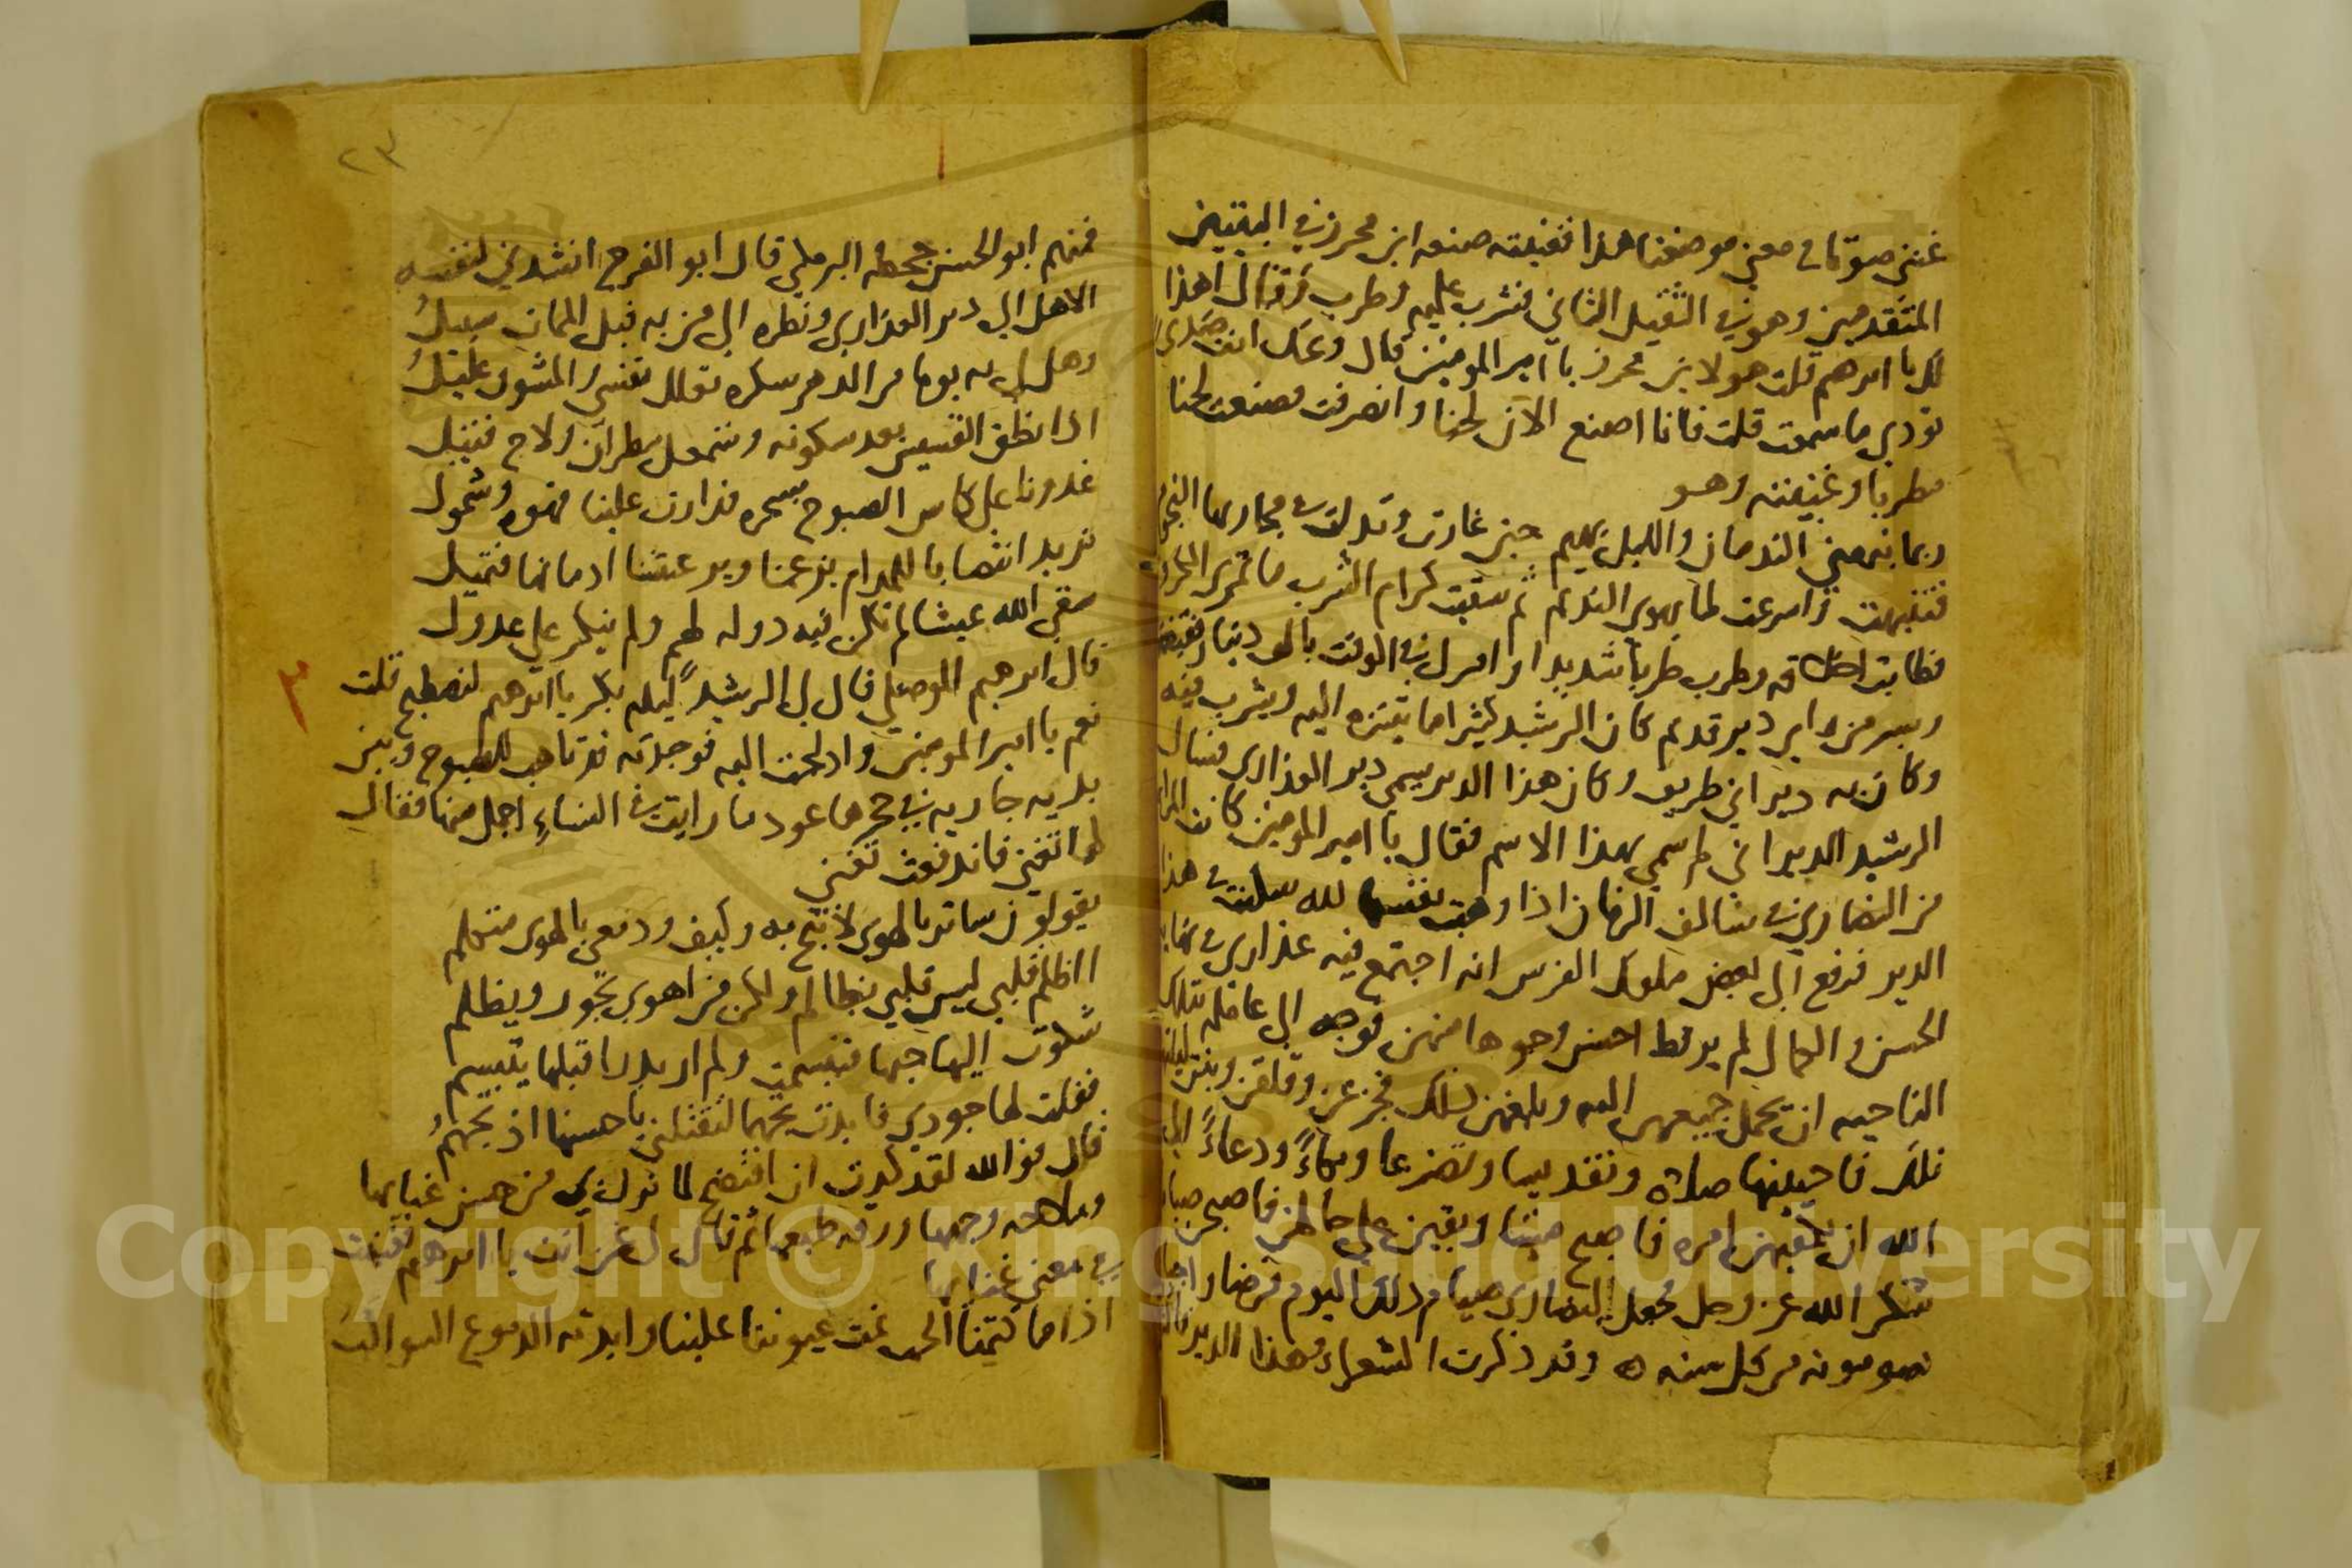 غنني صوتا في معنى موضعنا هذا فغنيته صنعه ابن محرز في البيتين
المتقدمين وهو في الثقيل الثاني فشرب عليه وطرب وقال اهذا
لك يا ابرهيم قلت هو لابن محرز يا امير المومنين قال وعسى انت صدى
تودي ما سمعت قلت فانا اصنع الان لحنا وانصرفت فصنعت لحنا
مطربا وغنيته وهو
ربما نبهني الندمان والليل بهيم حين غارت وتدلت في مجاريها النجوم
فتنبهت واسرعت لما يهوى النديم ثم سقيت كرام الشرب ما تجري الكروم
فطابت وطرب طربا شديدا وامر لي في الوقت بالف دينار
وبسر من راى دير قديم كان الرشيد كثيرا ما يتنزه اليه ويشرب فيه
وكان به ديراني ظريف وكان هذا الدير يسمى دير العذارى فسال
الرشيد الديراني لم سمي بهذا الاسم فقال يا امير المومنين كانت المراه
من النصارى في سالف الزمان اذا وهبت نفسها لله سكنت في هذا
الدير فرفع الى بعض ملوك الفرس انه اجتمع فيه عذارى في نهايه
الحسن والكمال لم ير قط احسن وجوها منهن فوجه الى عامله بتلك
الناحيه ان يحمل جميعهن اليه وبلغهن ذلك فجزعن وقلقن وبتن ليلتهن
تلك فاحيينها صلاة وتقديسا وتضرعا وبكاءً ودعاءً الى
الله ان يكفيهن امره فاصبح ميتا وبقين على حالهن فاصبحن صياما
شكرا لله عز وجل فجعل النصارى صيام ذلك اليوم فرضا واجبا
يصومونه في كل سنه ه وقد ذكرت الشعراء هذا الدير
٢٣
فمنهم ابو الحسن جحظه البرمكي قال ابو الفرج انشدني لنفسه
الا هل الى دير العذارى ونظره الى من به قبل الممات سبيلُ
وهل لي به يوما من الدهر سكره تعلل نفسي والمشوق عليلُ
اذا نطق القسيس بعد سكوته وشمعل مطران ولاح فتيل
غدونا على كاس الصبوح بسحره فدارت علينا قهوه وشمول
نريد انتصابا للمدام بزعمنا ويرعشنا ادمانها فنميل
سقى الله عيشا لم تكن فيه دوله لهم ولم ينكر علي عذول
قال ابرهيم الموصلي قال لي الرشيد ليله بكر يا ابرهيم لنصطبح قلت
نعم يا امير المومنين وادلجت اليه فوجدته قد تاهب للصبوح وبين
يديه جاريه في حجرها عود ما رايت في النساء اجمل منها فقال
لها تغني فاندفعت تغني
يقولون ساتر بالهوى لا تبح به وكيف ودمعي بالهوى متكلم
ااظلم قلبي ليس قلبي بظالم ولكن من اهوى يجور ويظلم
شكوت اليها حبها فتبسمت ولم ار بدرا قبلها يتبسم
فقلت لها جودي فابدت تجهما لتقتلني يا حسنها اذ تجهمُ
قال فوالله لقد كدت ان افتضح لما نزل بي من حسن غنايها
وملاحه وجهها ورقه طبعها ثم قال لي غن انت يا ابرهيم فغنيت
في معنى غنايها
اذا ما كتمنا الحب نمت عيوننا علينا وابدته الدموع السواكب
Copyright © King Saud University